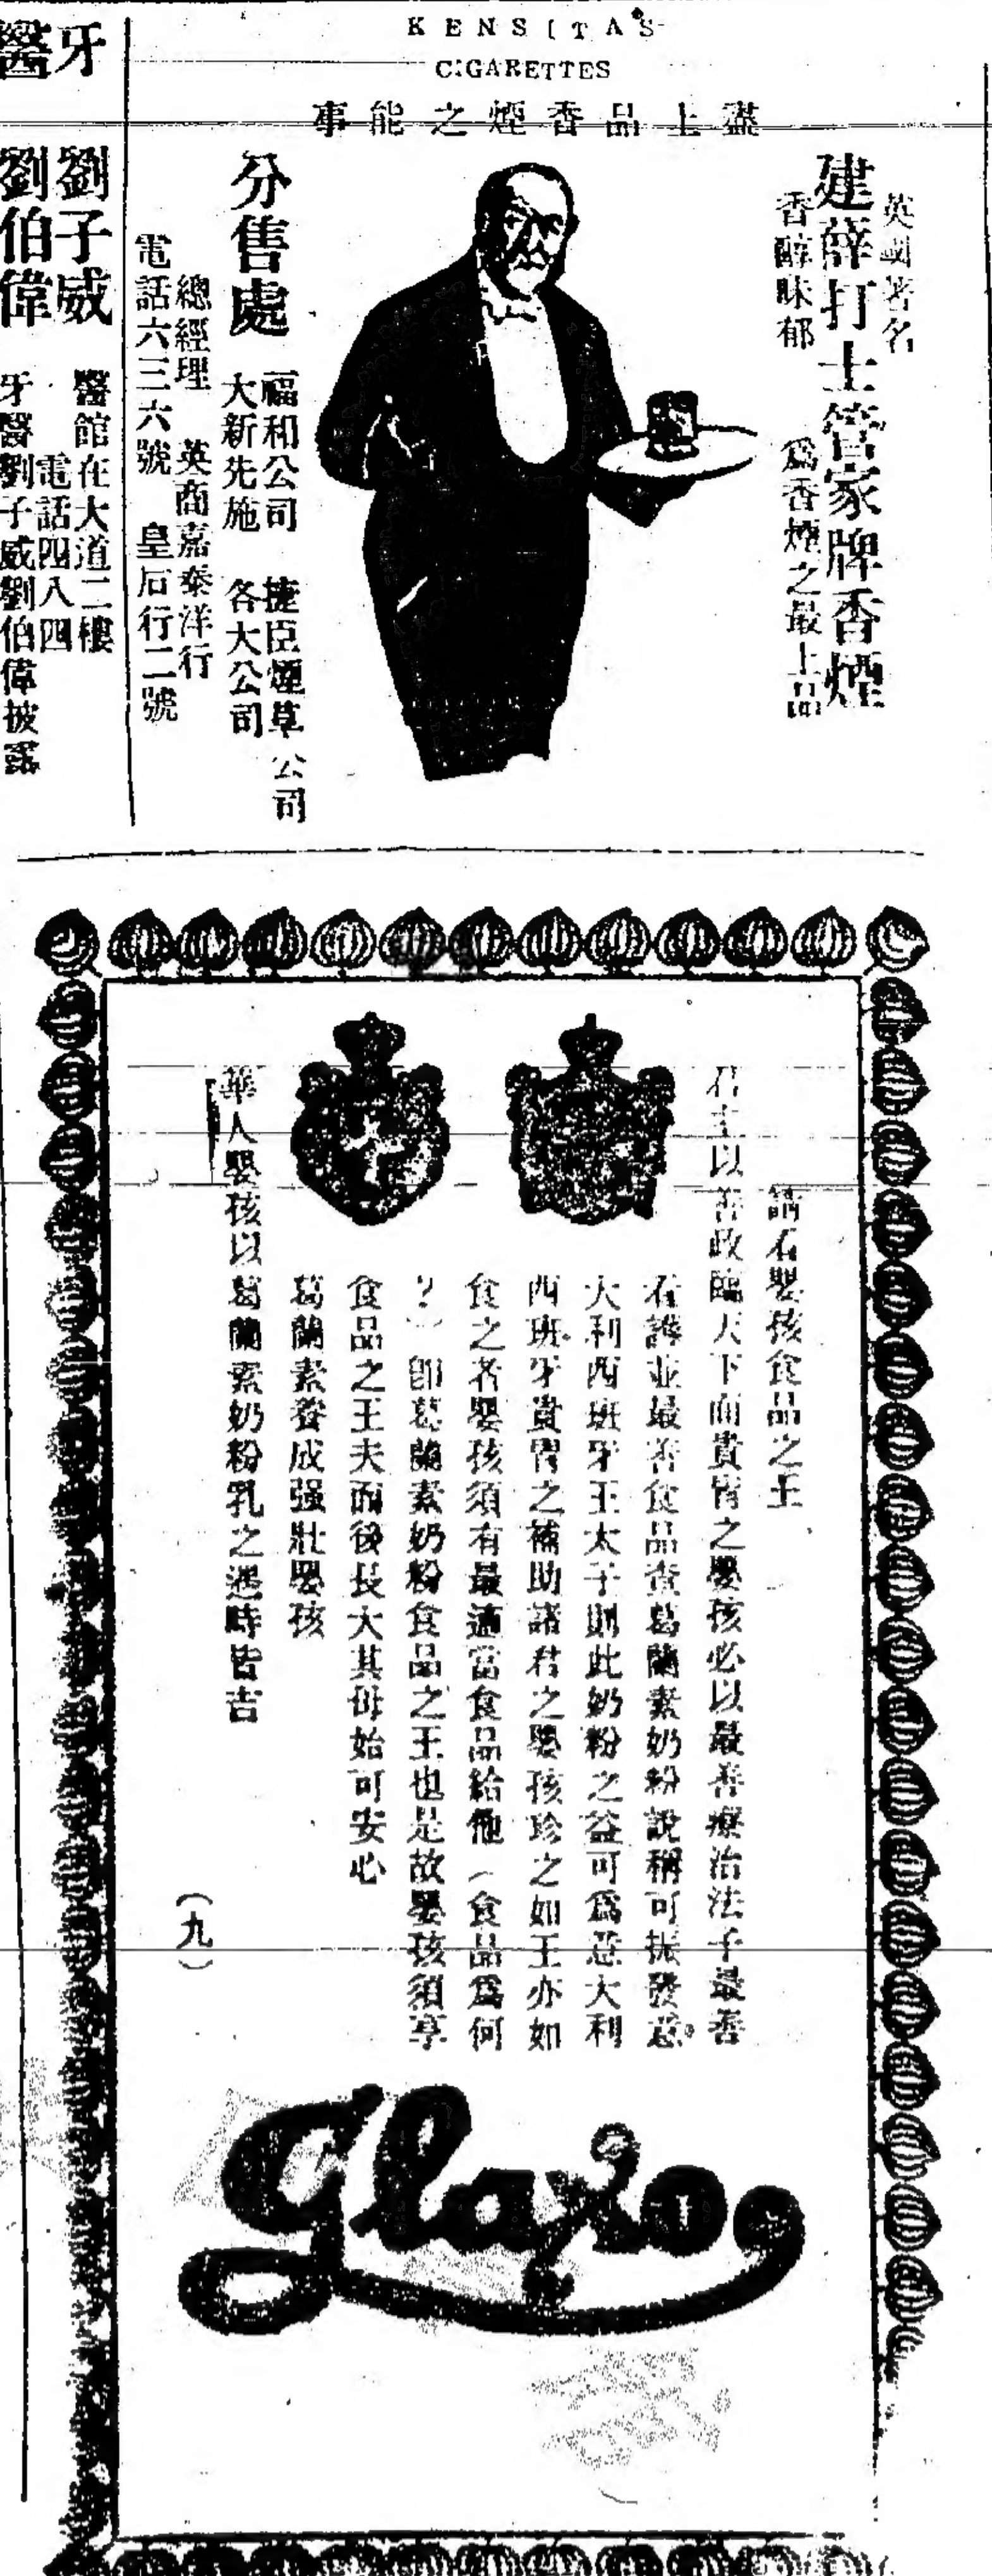 KENSITAS
CIGARETTES
盡上品香煙之能事
英國著名
建薛打士管家牌香煙
香醇味郁 為香煙之最上品
分售處
福和公司 捷臣煙草公司
大新先施 各大公司
總經理 英商嘉泰洋行
電話六三六號 皇后行二號
牙醫
劉子威
劉伯偉
醫館在大道二樓
電話四八四
牙醫劉子威劉伯偉披露
請看嬰孩食品之王
君主以善政臨天下而貴胄之嬰孩必以最善療治法子最善
看護並最善食品查葛蘭素奶粉說稱可振發意
大利西班牙王太子則此奶粉之益可為意大利
西班牙貴胄之補助諸君之嬰孩珍之如王亦如
食之者嬰孩須有最適當食品給他(食品為何
?)即葛蘭素奶粉食品之王也是故嬰孩須享
食品之王夫而後長大其母始可安心
葛蘭素養成强壯嬰孩
華人嬰孩以葛蘭素奶粉乳之遇時皆吉
(九)
Glaxo